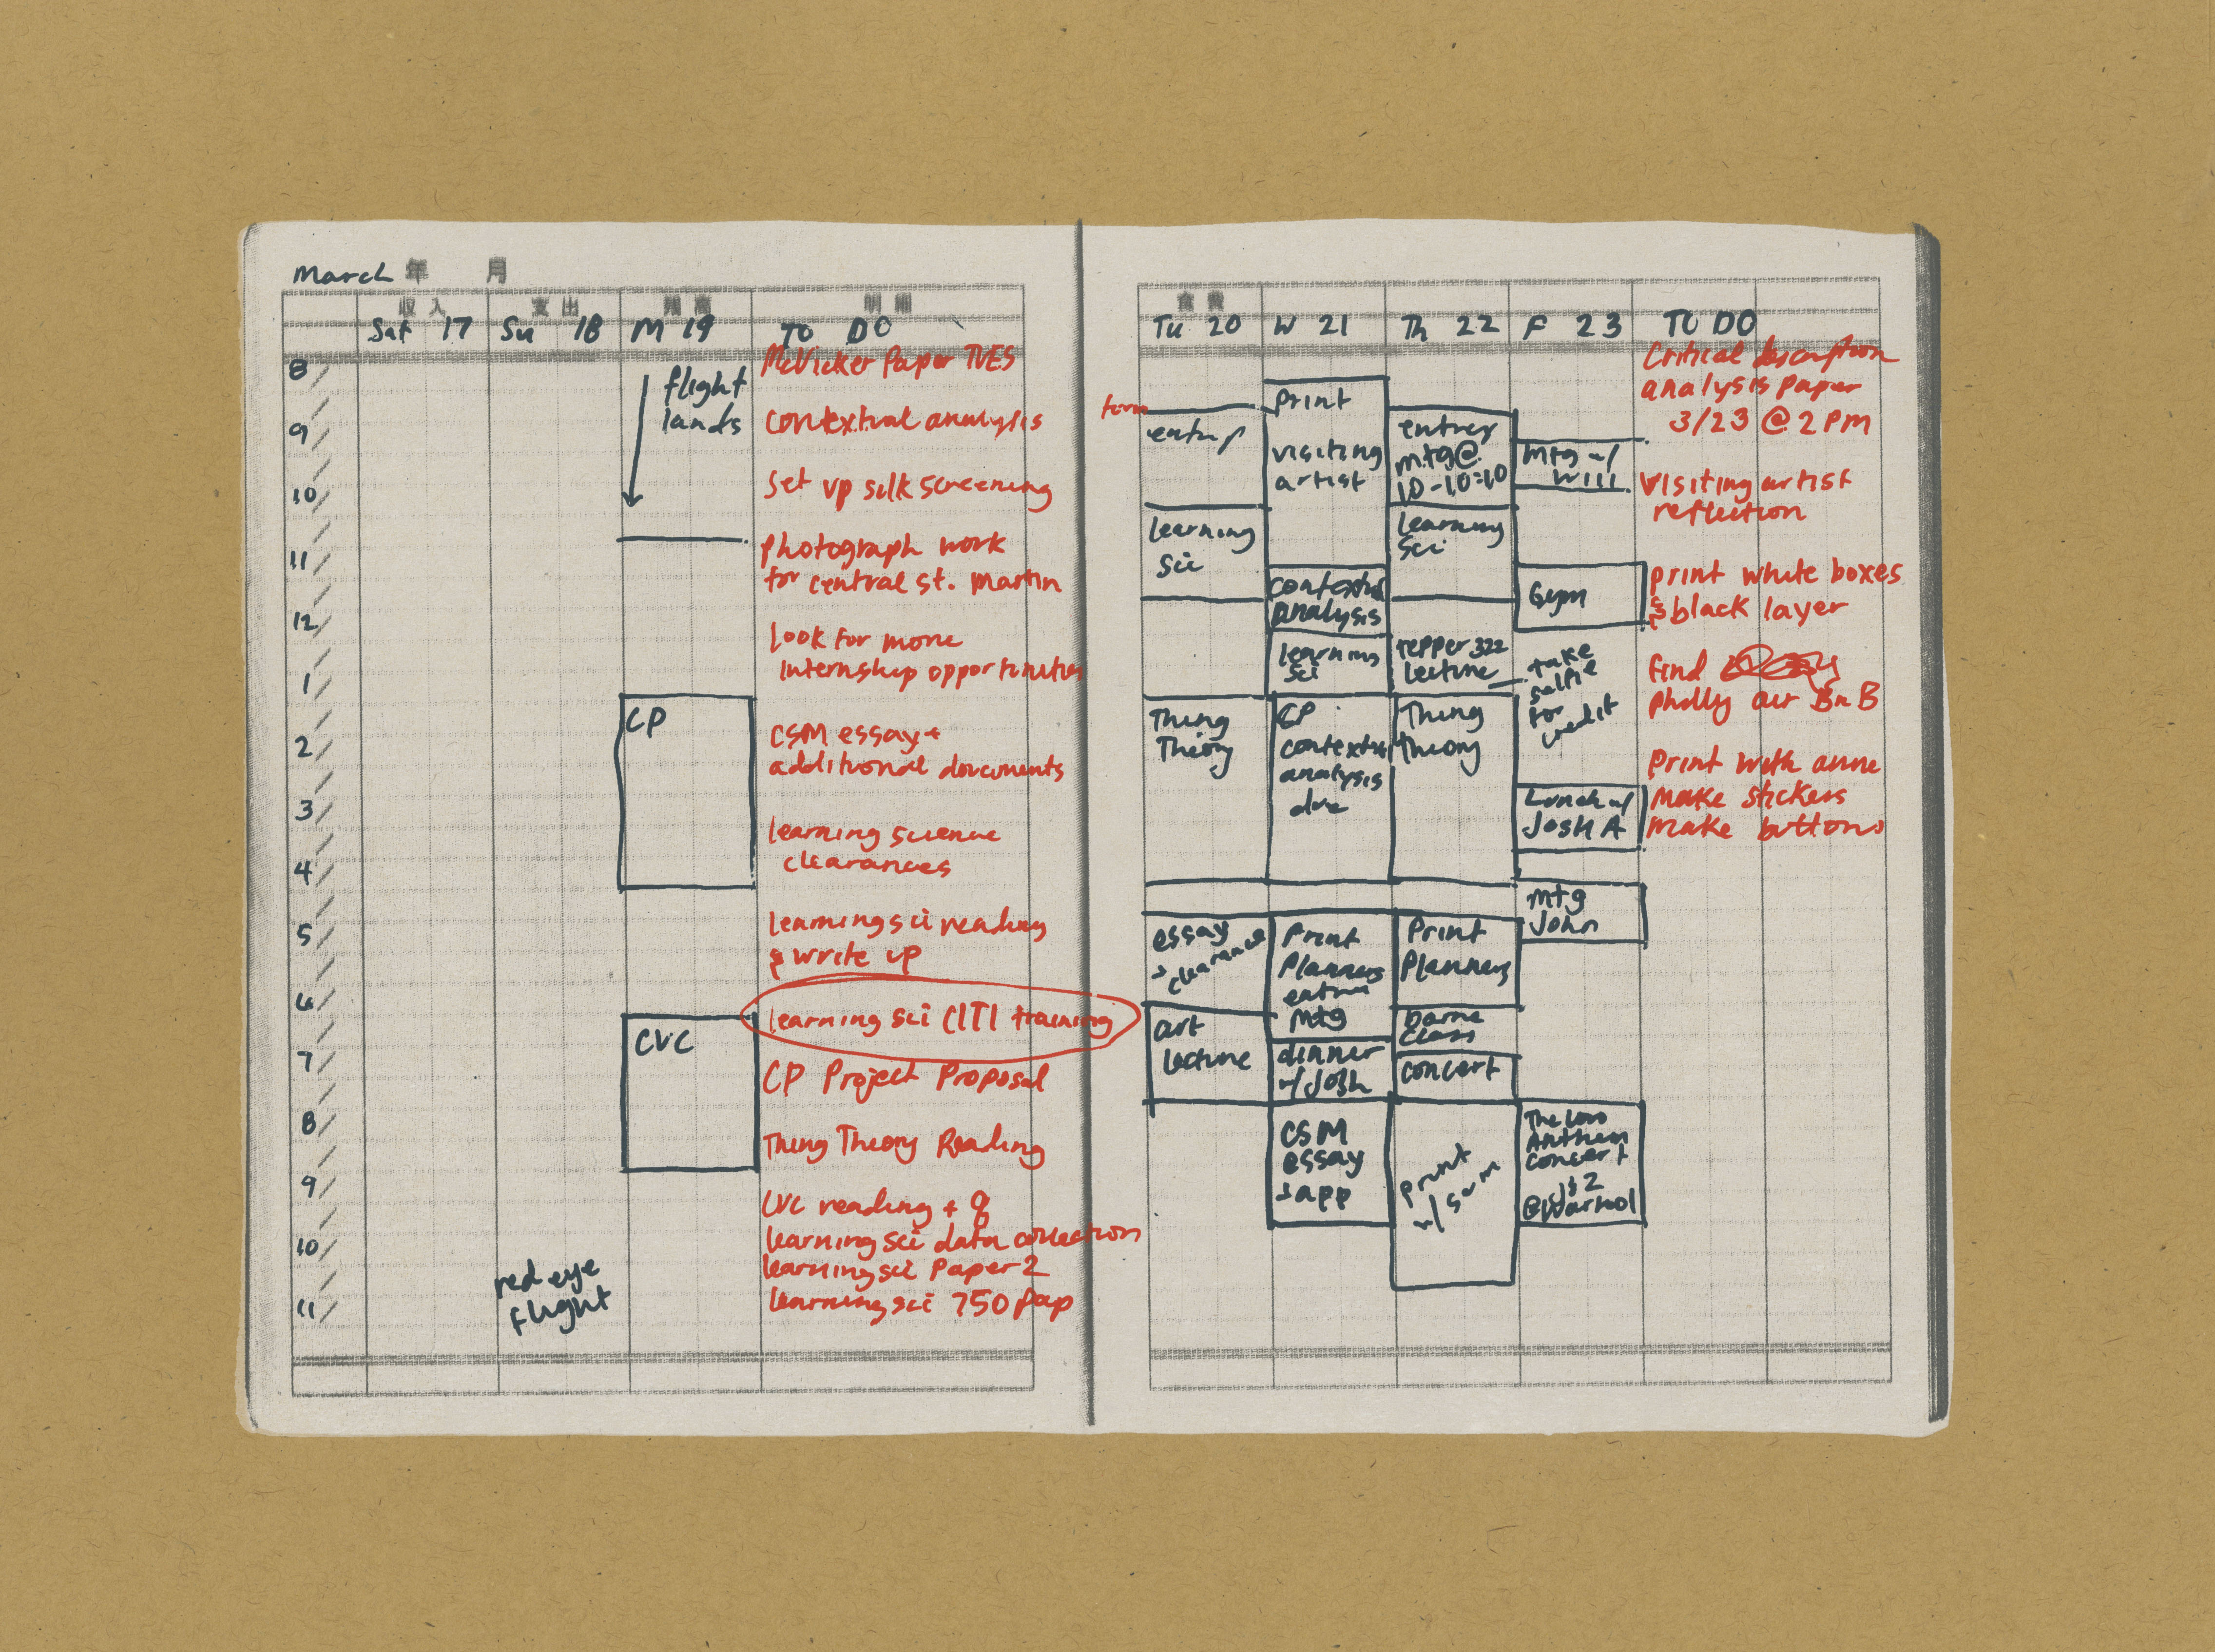 March 年 月
収入 支出 残高 明細
Sat 17 Su 18 M 19 TO DO
8
9
10
11
12
1
2
3
4
5
6
7
8
9
10
11
red eye
flight
flight
lands
CP
CVC
McVicker Paper TVES
contextual analysis
Set up silk screening
photograph work
for central st. martin
look for more
internship opportunities
CSM essay +
additional documents
learning science
clearances
learning sci reading
& write up
learning sci CITI training
CP Project Proposal
Thing Theory Reading
CVC reading + q
learning sci data collection
learning sci Paper 2
learning sci 750 pap
Tu 20 W 21 Th 22 F 23 TO DO
learning
sci
Thing
Theory
essay
+ clearance
art
lecture
print
visiting
artist
contextual
analysis
learning
sci
CP
contextual
analysis
due
Print
Planners
mtg
dinner
w/ Josh
CSM
essay
+ app
mtg @
10-10:10
learning
sci
tepper 322
lecture
take
selfie
for
credit
Thing
theory
Print
Planners
barre
class
concert
print
w/ sam
mtg w/
will
Gym
Lunch w/
Josh A
mtg
John
The
Anthem
concert
@ Warhol
Critical description
analysis paper
3/23 @ 2 PM
Visiting artist
reflection
print white boxes
& black layer
find
philly air BnB
Print with anne
make stickers
make buttons